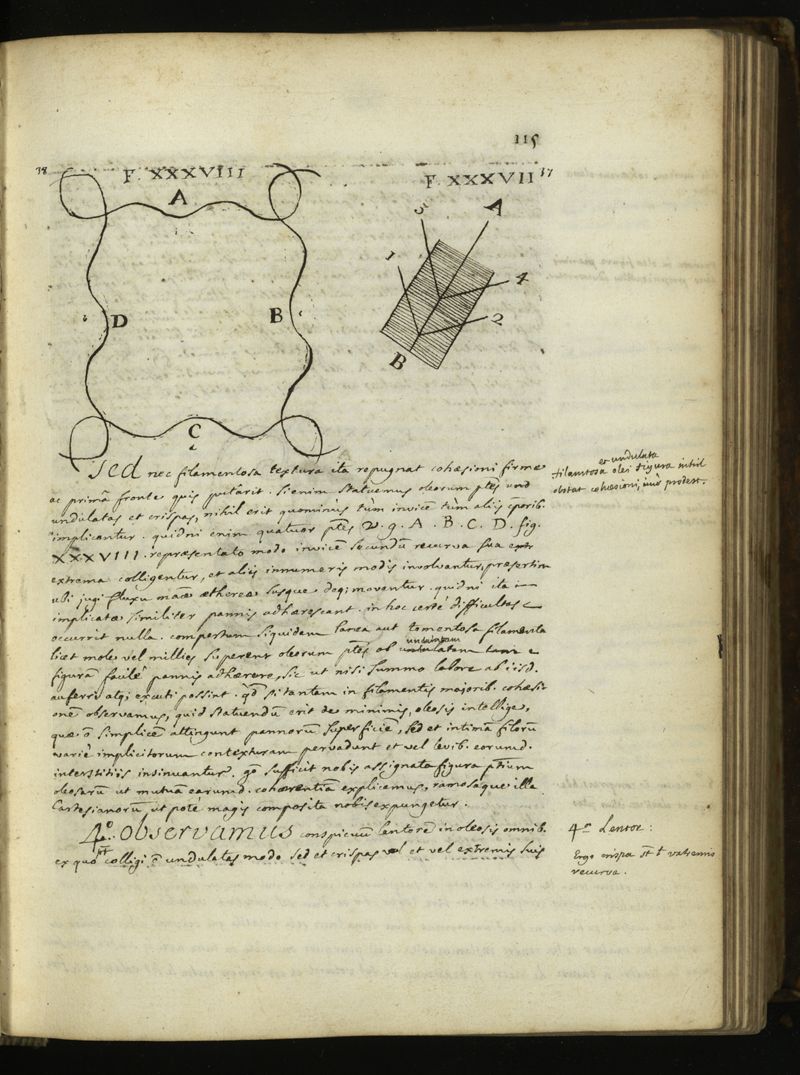 115
38 F. XXXVIII
F. XXXVII 37
A
D
B
C
3
A
1
4
2
B
Sed nec filamentosa textura ita repugnat cohæsioni firmæ
ac primâ fronte quis putârit. Si enim statuemus oleorum ptes und
undulatas et crispas, nihil erit quominus tùm invicē tùm aliis cporib.
implicantur. quidni enim quatuor ptes v. g. A. B. C. D. fig.
XXXVIII. repræsentato modo invicē secundū recurva sua extr
extrema colligentur, et aliis innumeris modis involvantur, præsertim
ubi jugi fluxu maæ æthereæ susque deq; moventur. quidni ita
implicatæ similiter pannis adhærescant. in hoc certè difficultas
occurrit nulla. compertum siquidem lanea aut tomentosa filamenta
licet mole vel millies superent oleorum ptes ob undulatam tam
figurā facilè pannis adhærere, sic ut nisi summo labore ab iisd.
auferri atq; excuti possint. qd si tantam in filamentis majorib. cohæsi
onē observamus, quid statuendū erit de minimis, oleosis intellige,
quæ ō simplicē attingunt pannorū superficiē, sed et intimā filorū
variè implicitorum contexturam pervadunt et vel levib. eorumd.
interstitiis insinuantur. go sufficit nobis assignata figura ptium
oleosarū ut mutuā earumd. cohærentiā explicemus, ramosaque illa
Cartesianorū ut potè magis composita nobis expungetur.
4º. Observamus conspicuum lentorē in oleosis omnib.
ex quo colligi ō undulatas modo sed et crispas vel et vel extremis suis
et undulata
filamtosa olei figura nihil
obstat cohæsioni, imò prodest.
4º Lentor:
Ergo crispa st t vatremis
recurva.